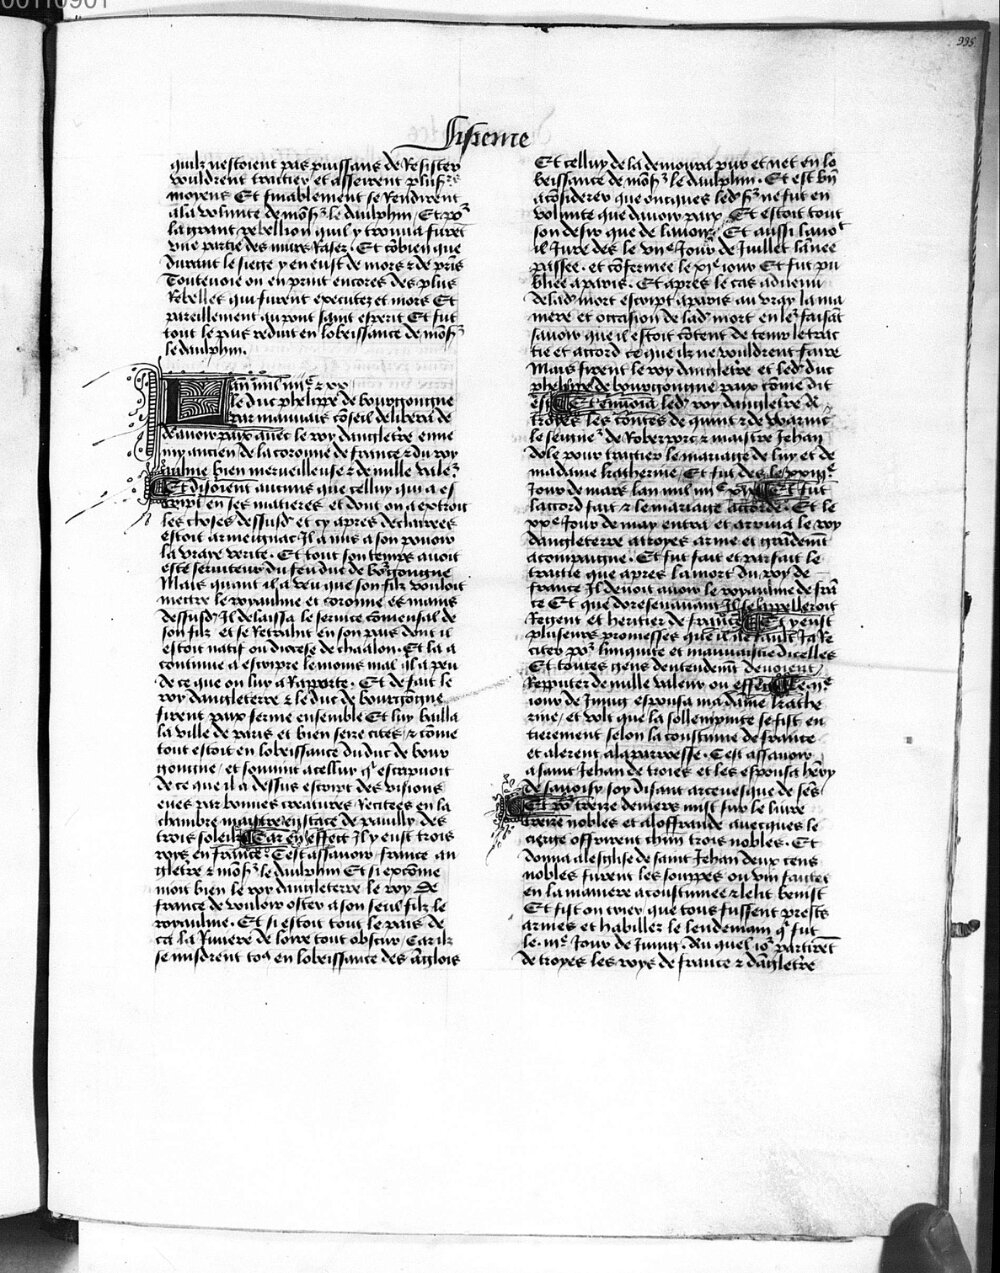 00110901
995
Sisieme
quilz nestoient pas puissans de Resister
vouldrent traictier et assenerent plusrs
moyens Et finablement se Rendirent
a la volunte de monsr le daulphin / Et por
la grant rebellion quil y trouva furent
une partie des murs Rasez . Et combien que
durant le siege y en eust de mors & de prins
Toutevoie on en print encores des plus
Rebelles qui furent executez et mors Et
pareillement au pont saint esperit Et fut
tout le pais reduit en lobeissance de monsr
le daulphin .
Lan mil iiiic & xx
le duc phelippe de bourgongne
par mauvais conseil delibera de
davoir paix avec le roy dangleterre enne
my ancien de la coronne de france & du roy
aulme bien merveilleuse & de nulle valer
Et disoient aucuns que celluy qui a es
cript en ses matieres et dont on a extrait
les choses dessusd et cy apres declairees
estoit armeignac Il a mis a son povoir
la vraye verite . Et tout son temps avoit
este serviteur du feu duc de bourgongne
Mais quant il a veu que son filz vouloit
mettre le royaulme et coronne es mains
dessusd Il delaissa le service comensal de
son filz et se Retrahit en son pais dont il
estoit natif ou diocese de chaalon . Et la a
continue a escripre le moins mal quil a peu
de ce que on luy a Raporte . Et de fait le
roy dangleterre & le duc de bourgongne
firent paix ferme ensemble Et luy bailla
la ville de paris et bien seize citez / & comme
tout estoit en lobeissance du duc de bour
gongne / et souvint a celluy qi escripvoit
de ce que il a dessus escript des visions
eues par bonnes creatures Recitees en la
chambre maistre eustace de pavilly des
trois soleilz Car en effect Il y eust trois
roys en france . Cest assavoir france an
gleterre & monsr le daulphin Et si extome
moit bien le roy dangleterre le roy De
france de vouloir oster a son seul filz le
royaulme . Et si estoit tout le pais de
ca la Riviere de loire tout obscur / Car ilz
se misdrent tos en lobeissance des Anglois
Et celluy de la demoura pur et net en lo
beissance de monsr le daulphin . Et est bien
a considerer que oncques ledsr ne fut en
volunte que davoir paix . Et estoit tout
son desir que de lavoir . Et aussi lavoit
il Jure des le viie Jour de Juillet lannee
passee . et confermee le xie jour Et fut pu
bliee a paris . Et apres le cas advenu
de lad mort escript a paris au vray la ma
niere et occasion de lad mort en lez faisant
savoir que il estoit content de tenir le trai
tie et accord ce que ilz ne vouldrent faire
Mais firent le roy dangleterre et led duc
phelippe de bourgongne paix comme dit
est Et envoia led roy dangleterre de
troyes les contes de quint & de warint
le seigner de Roberport & maistre Jehan
dole pour traictier le mariage de luy et de
madame katherine / Et fut des le xxiiie
Jour de mars lan mil iiiic xix Et fut
laccord fait & le mariage accorde . Et le
xxe Jour de may entra et arriva le roy
dangleterre a troyes arme et grandement
acompaigne . Et fut fait et parfait le
traitie que apres la mort du roy de
france Il devoit avoir le royaulme de fran
ce Et que doresenavant Il se appelleroit
Regent et heritier de france Et y eust
plusieurs promesses que il ne fault Ja Re
citer por liniquite et mauvaistie dicelles
Et toutes gens dentendement devoient
Repputer de nulle valeur ou effect Le iie
jour de Juing espousa madame kathe
rine / et volt que la sollempnite se fist en
tierement selon la coustume de france
et alerent a la parroesse . Cest assavoir
a saint Jehan de troies et les espousa henry
de savoisy soy disant arcevesque de sens
Et por treize deniers mist sur le livre
treize nobles et a loffrande avecques le
cierge offrirent chun trois nobles . Et
donna a leglise de saint Jehan deux cens
nobles furent les souppes ou vin faictes
en la maniere acoustumee & le lit benist
Et fist on crier que tous fussent prests
armes et habiller le lendemain qi fut
le . iiie Jour de Juing . du quel jor partirent
de troyes les roys de france & dangleterre